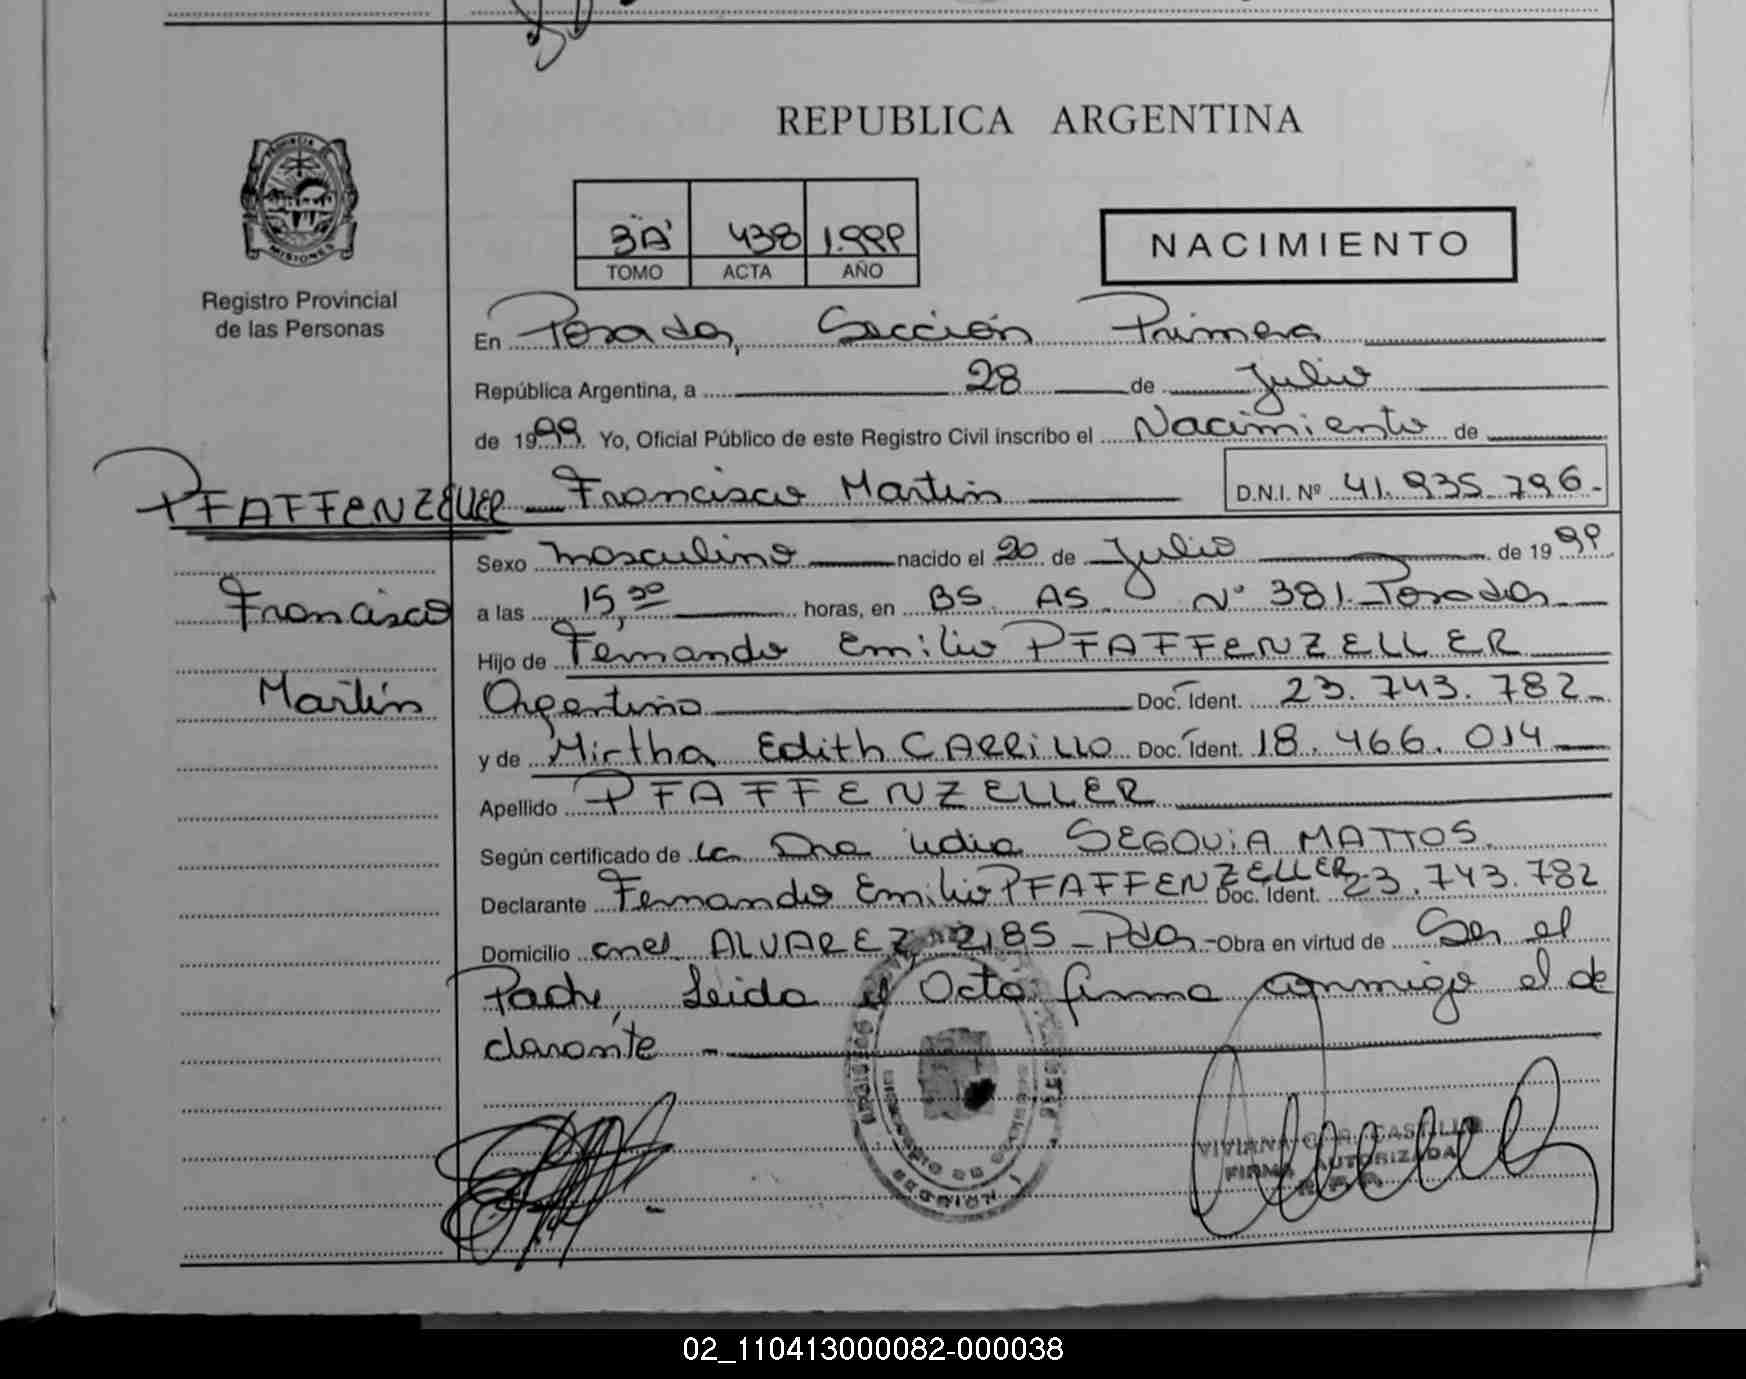 REPUBLICA ARGENTINA
PROVINCIA DE
MISIONES
Registro Provincial
de las Personas
3"A" 438 1.999
TOMO ACTA AÑO
NACIMIENTO
En Posadas, Sección Primera
República Argentina, a 28 de Julio
de 1999. Yo, Oficial Público de este Registro Civil inscribo el Nacimiento de
PFAFFENZELLER Francisco Martín D.N.I. Nº 41.935.796.-
Sexo masculino nacido el 20 de Julio de 1999
Francisco
a las 15,30 horas, en BS. AS. Nº 381. Posadas
Hijo de Fernando Emilio PFAFFENZELLER
Martín
Argentino Doc. Ident. 23.743.782.-
y de Mirtha Edith CARRILLO Doc. Ident. 18.466.014
Apellido PFAFFENZELLER
Según certificado de la Dra Lidia SEGOVIA MATTOS.
Declarante Fernando Emilio PFAFFENZELLER Doc. Ident. 23.743.782
Domicilio cnel. ALVAREZ 2185 - Pdas - Obra en virtud de Ser el
Padre, Leida el Acta firma conmigo el de
clarante -
VIVIANA CASTILLO
FIRMA AUTORIZADA
02_110413000082-000038